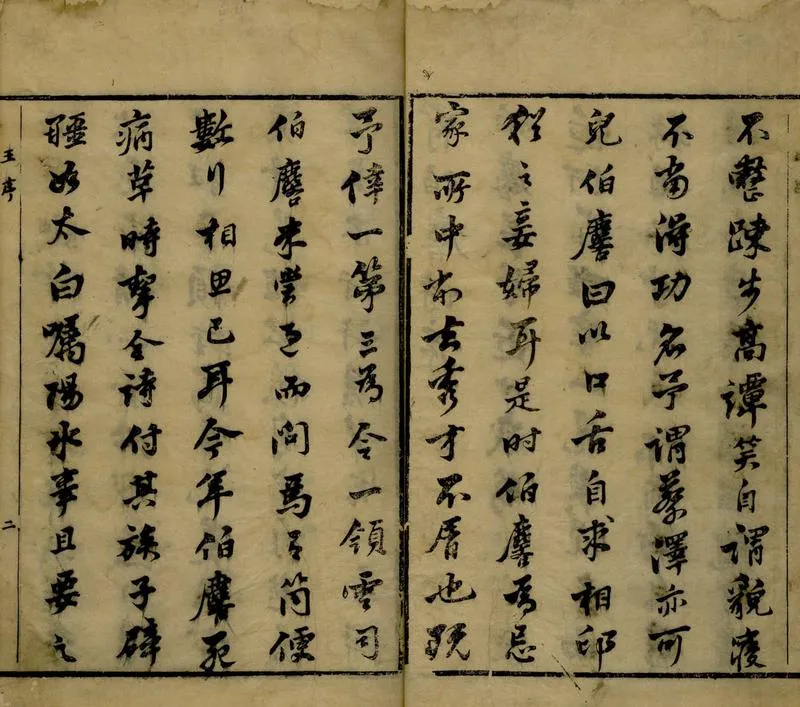 不整疎步高譚笑自謂貌寢
不當得功名予謂蔡澤亦可
兒伯麐曰以口舌自求相印
猶之妾婦耳是時伯麐為忌
家所中亦去秀才不屑也既
予倖一第三為令一領雲司
伯麐未嘗過而問焉有筒便
數行相思已耳今年伯麐死
病革時挈全詩付其族子
疆如太白囑陽冰事且要之
王序
二